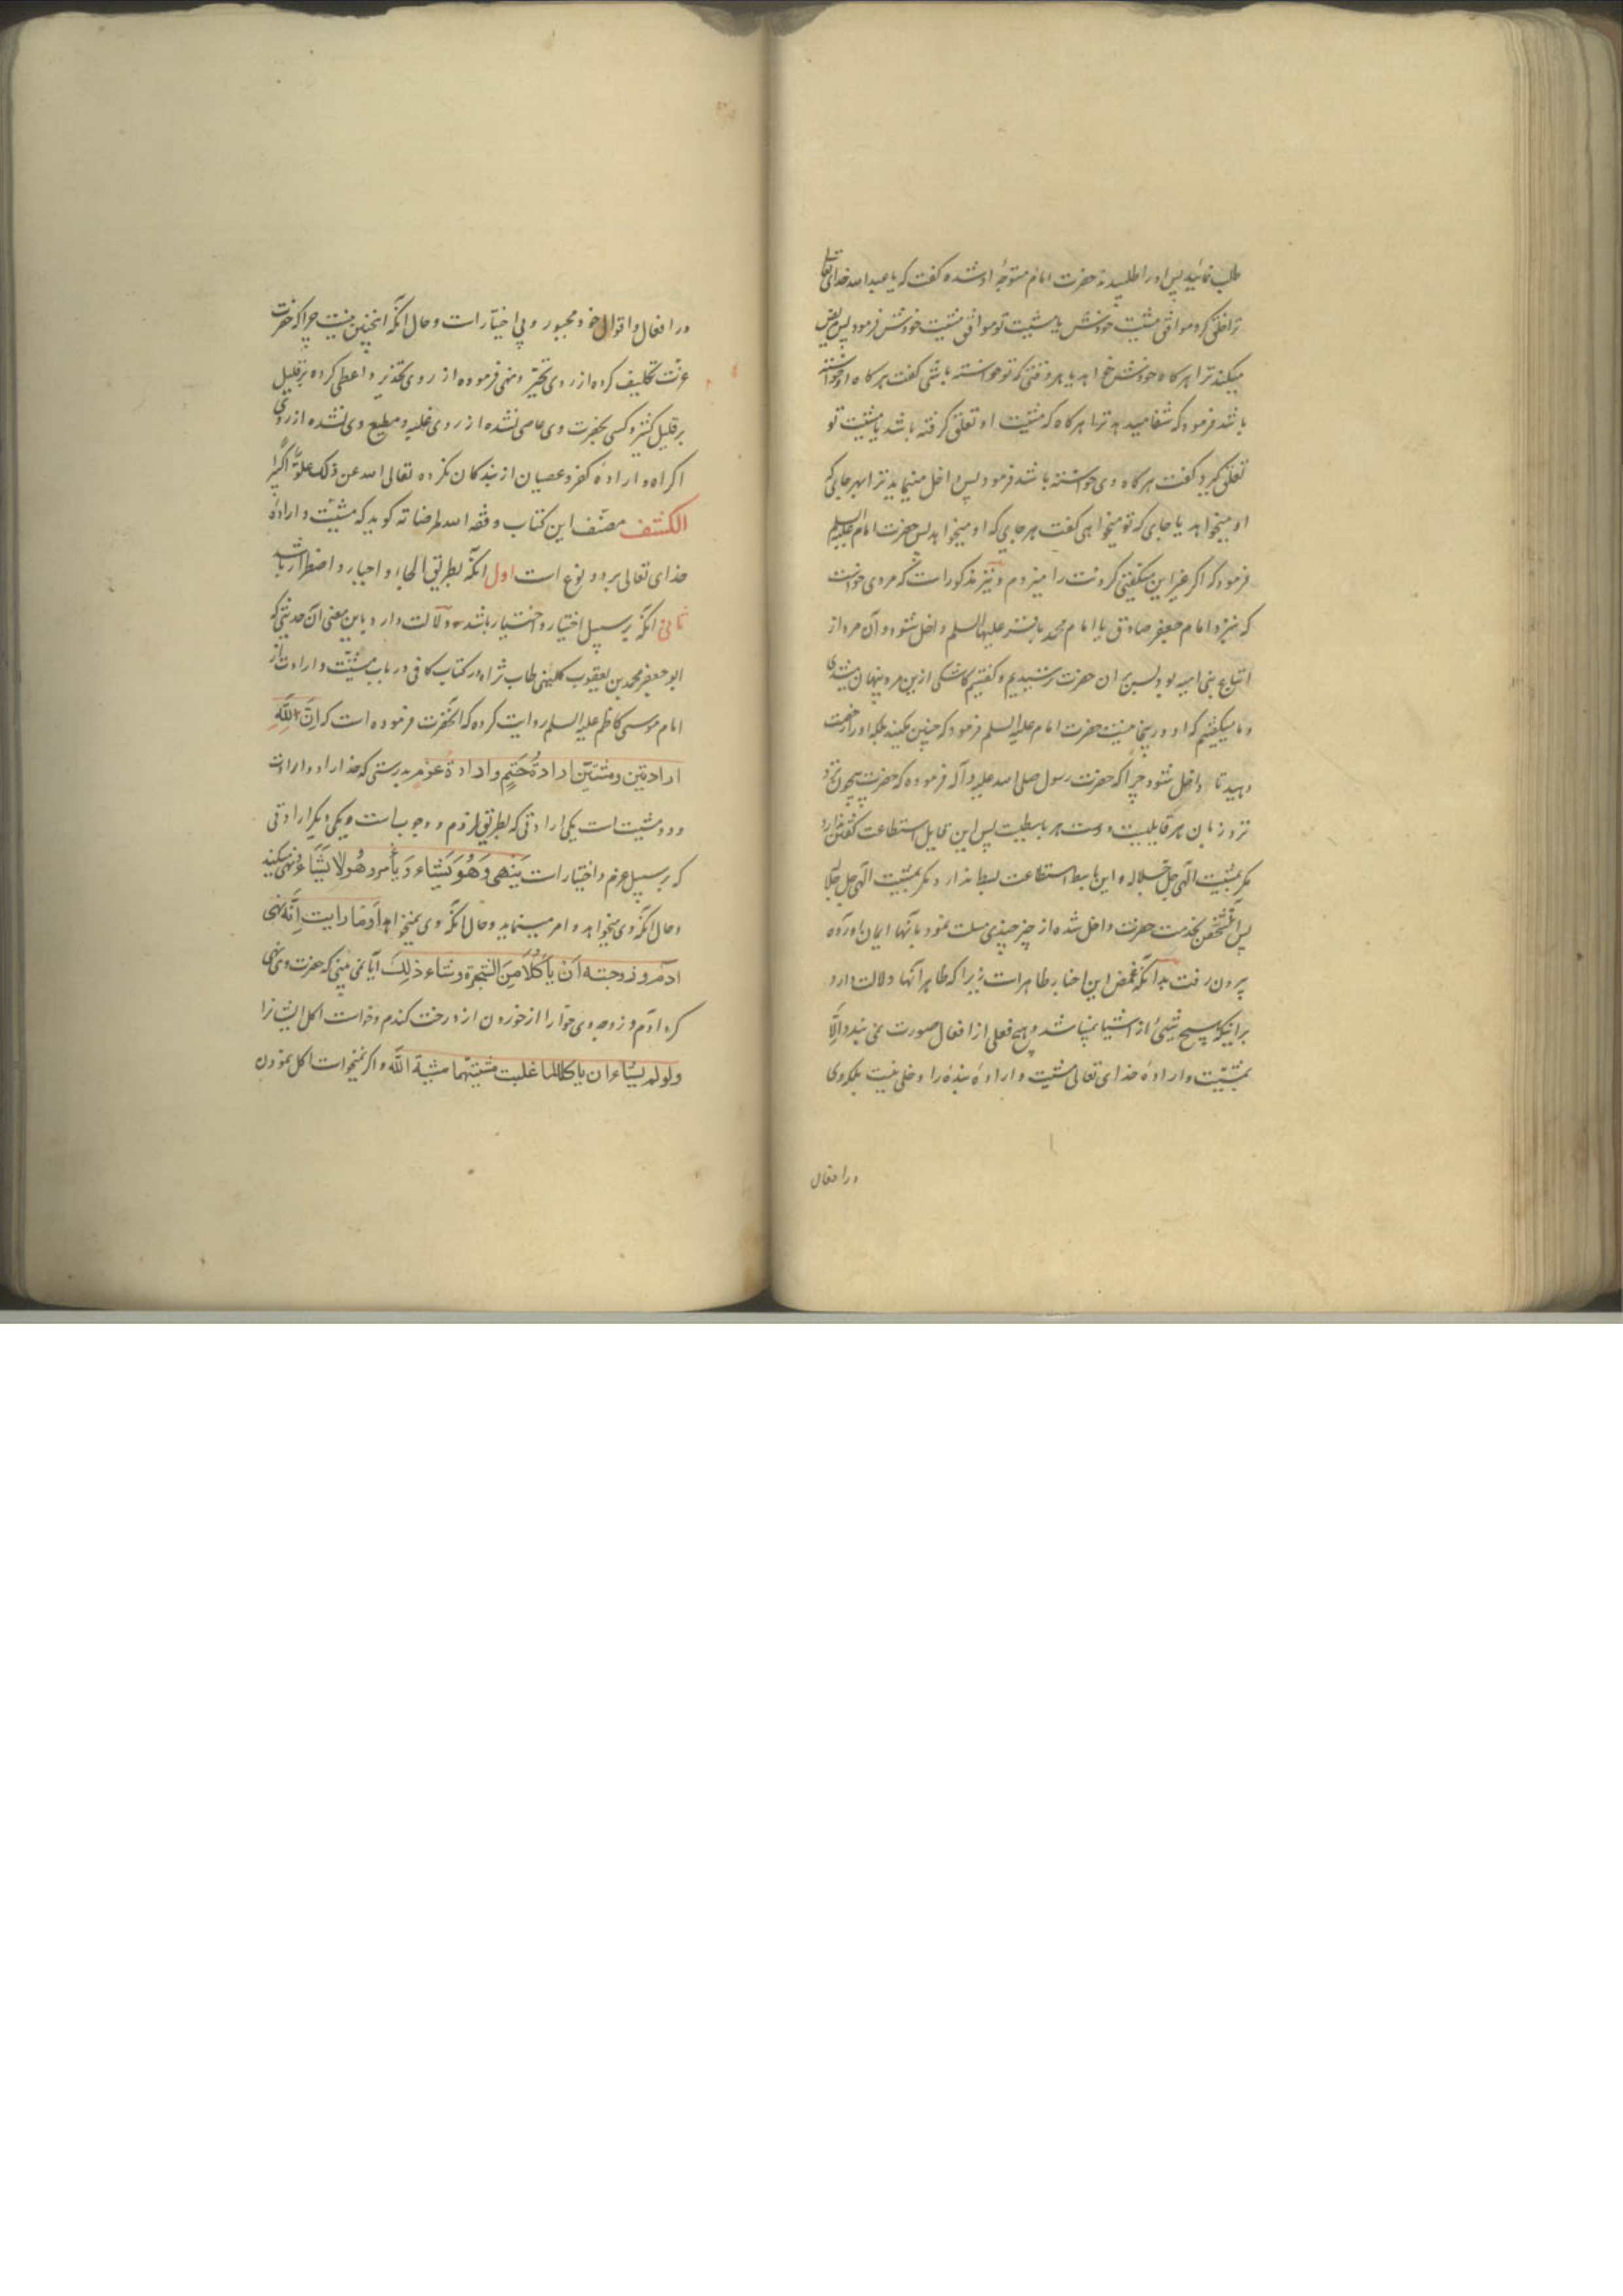 طلب نمائید پس او را طلبیدند حضرت امام متوجه او شده گفت که یا عبد الله خدای تعالی
ترا خلق کرد موافق مشیت خودش یا مشیت تو موافق مشیت خودش فرمود پس مریض
میکند ترا هرگاه خودش خواهد یا هر وقتی که تو خواسته باشی گفت هرگاه او خواسته
باشد فرمود که شفا میدهد ترا هرگاه که مشیت او تعلق گرفته باشد یا مشیت تو
تعلق گیرد گفت هرگاه وی خواسته باشد فرمود پس داخل مینماید ترا بهر جایی که
او میخواهد یا جای که تو میخواهی گفت هر جایی که او میخواهد پس حضرت امام علیه السلم
فرمود که اگر غیر این میگفتی گردنت را میزدم و نیز مذکور است که مردی خواست
که نیزد امام جعفر صادق یا امام محمد باقر علیهما السلم داخل شود و آن مرد از
اتباع بنی امیه بود پس بر ان حضرت ترسیدیم و گفتیم کاشکی ازین مرد پنهان میشدی
و ما میگفتیم که او درینجا نیست حضرت امام علیه السلم فرمود که چنین مکنید بلکه او را رخصت
دهید تا داخل شود چرا که حضرت رسول صلی الله علیه و آله فرموده که حضرت بیچون نزد
نزد زبان هر قایلیت و دست هر باسطیت پس این قایل استطاعت گفتن ندارد
مگر بمشیت الهی جل جلاله و این باسط استطاعت بسط ندارد مگر بمشیت الهی جل جلاله
پس آنشخص بخدمت حضرت داخل شده از چیز چیزی مسلت نمود بآنها ایمان آورده
بیرون رفت بدانکه غمض این اخبار ظاهر است زیرا که ظاهر آنها دلالت دارد
براینکه هیچ شیئی از اشیا نباشد و هیچ فعلی از افعال صورت نمی بندد الا
بمشیت و اراده خدای تعالی مشیت و اراده بنده را دخلی نیست بلکه وی
در افعال
در افعال و اقوال خود مجبور و بی اختیار است و حال آنکه اینچنین نیست چرا که حضرت
عزت تکلیف کرده از روی تخیر و نهی فرموده از روی تحذیر و اعطی کرده بر قلیل
بر قلیل کثیر و کسی بحضرت وی عاصی نشده از روی غلبه و مطیع وی نشده از روی
اکراه و اراده کفر و عصیان از بندگان نکرده تعالی الله عن ذلک علوا کبیرا
الکشف مصنف این کتاب وفقه الله لمرضاته گوید که مشیت و اراده
خدای تعالی بر دو نوع است اول آنکه بطریق الجاء و اجبار و اضطرار باشد
ثانی آنکه بر سبیل اختیار و اختیار باشد و دلالت دارد باین معنی آن حدیثی که
ابو جعفر محمد بن یعقوب کلینی طاب ثراه در کتاب کافی در باب مشیت و ارادت از
امام موسی کاظم علیه السلم روایت کرده که آنحضرت فرموده است که اِنَّ لِلّٰهِ
ارادتین و مشیتین ارادةُ حَتمٍ و ارادة عزمٍ بدرستی که خدا را دو ارادت
و دو مشیت است یکی ارادتی که بطریق لزوم و وجوبست و یکی دیگر ارادتی
که بر سبیل عزم و اختیار است یَنهی وَهُوَ یَشاء وَ یأمر وهُو لا یَشاء نهی میکند
و حال آنکه وی میخواهد و امر مینماید و حال آنکه وی نمیخواهد اَوَما رایت اَنَّه نهی
ادم و زوجته اَن یأکلا مِنَ الشجرة و شاء ذلِکَ آیا نمی بینی که حضرت وی نهی
کرد آدم و زوجه وی حوا را از خوردن از درخت گندم و خواست اکل ایشانرا
ولو لم یشاء ان یاکلا لما غلبت مشیتهما مشیة الله و اگر نمیخواست اکل نمودن